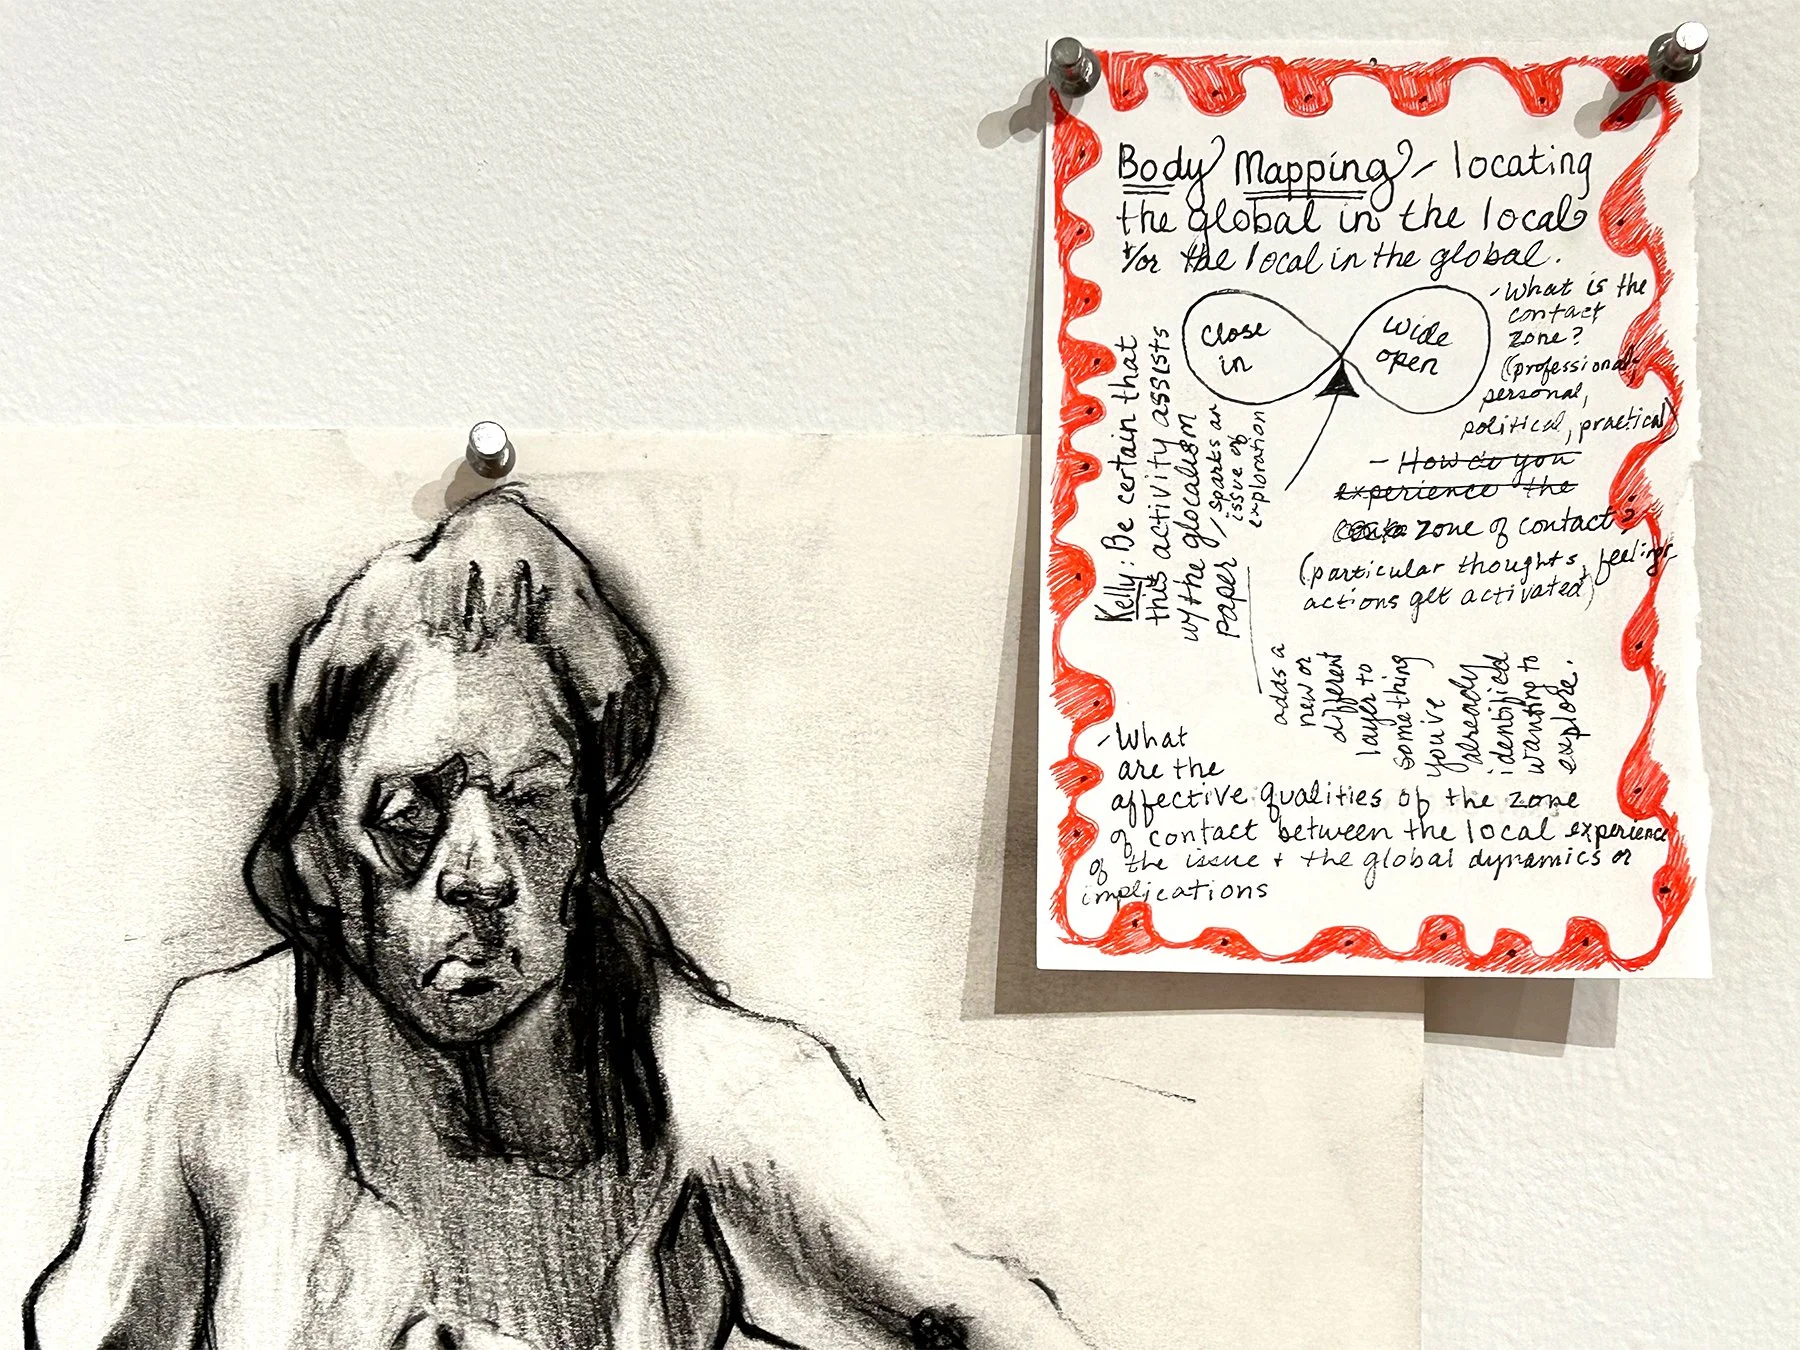 Body Mapping - locating
the global in the local
+/or the local in the global.
close
in
wide
open
- What is the
contact
zone?
(professional,
personal,
political, practical)
- How do you
experience the
zone of contact?
(particular thoughts, feelings,
actions get activated)
Kelly: Be certain that
this activity assists
w/ the glocalism
paper / sparks an
issue of
exploration
adds a
new or
different
layer to
something
you've
already
identified
wanting to
explore.
- What
are the
affective qualities of the zone
of contact between the local experience
of the issue + the global dynamics or
implications